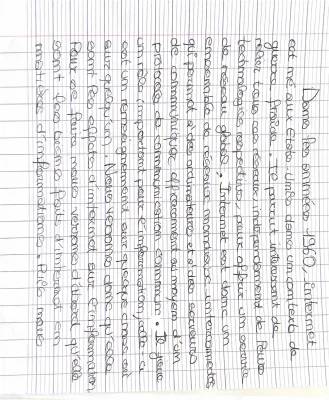 Dans les années 1960, internet
est né aux Etats-Unis dans un contexte de
guerre froide. Le projet intervient de
relier tous ces réseaux indépendamment de leurs
technologies respectives, pour offrir un service
de réseau global. Internet est donc un
ensemble de réseaux mondiaux interconnectés,
qui permet à des ordinateurs et à des serveurs
de communiquer efficacement au moyen d'un
protocole de communication commun. Il joue
un rôle important pour l'information, cela
est un renseignement sur quelque chose ou
sur quelqu'un. Nous verrons donc quels
sont les effets d'internet sur l'information
Pour se faire nous verrons d'abord quels
sont les points forts d'internet en
matières d'informations. Puis nous